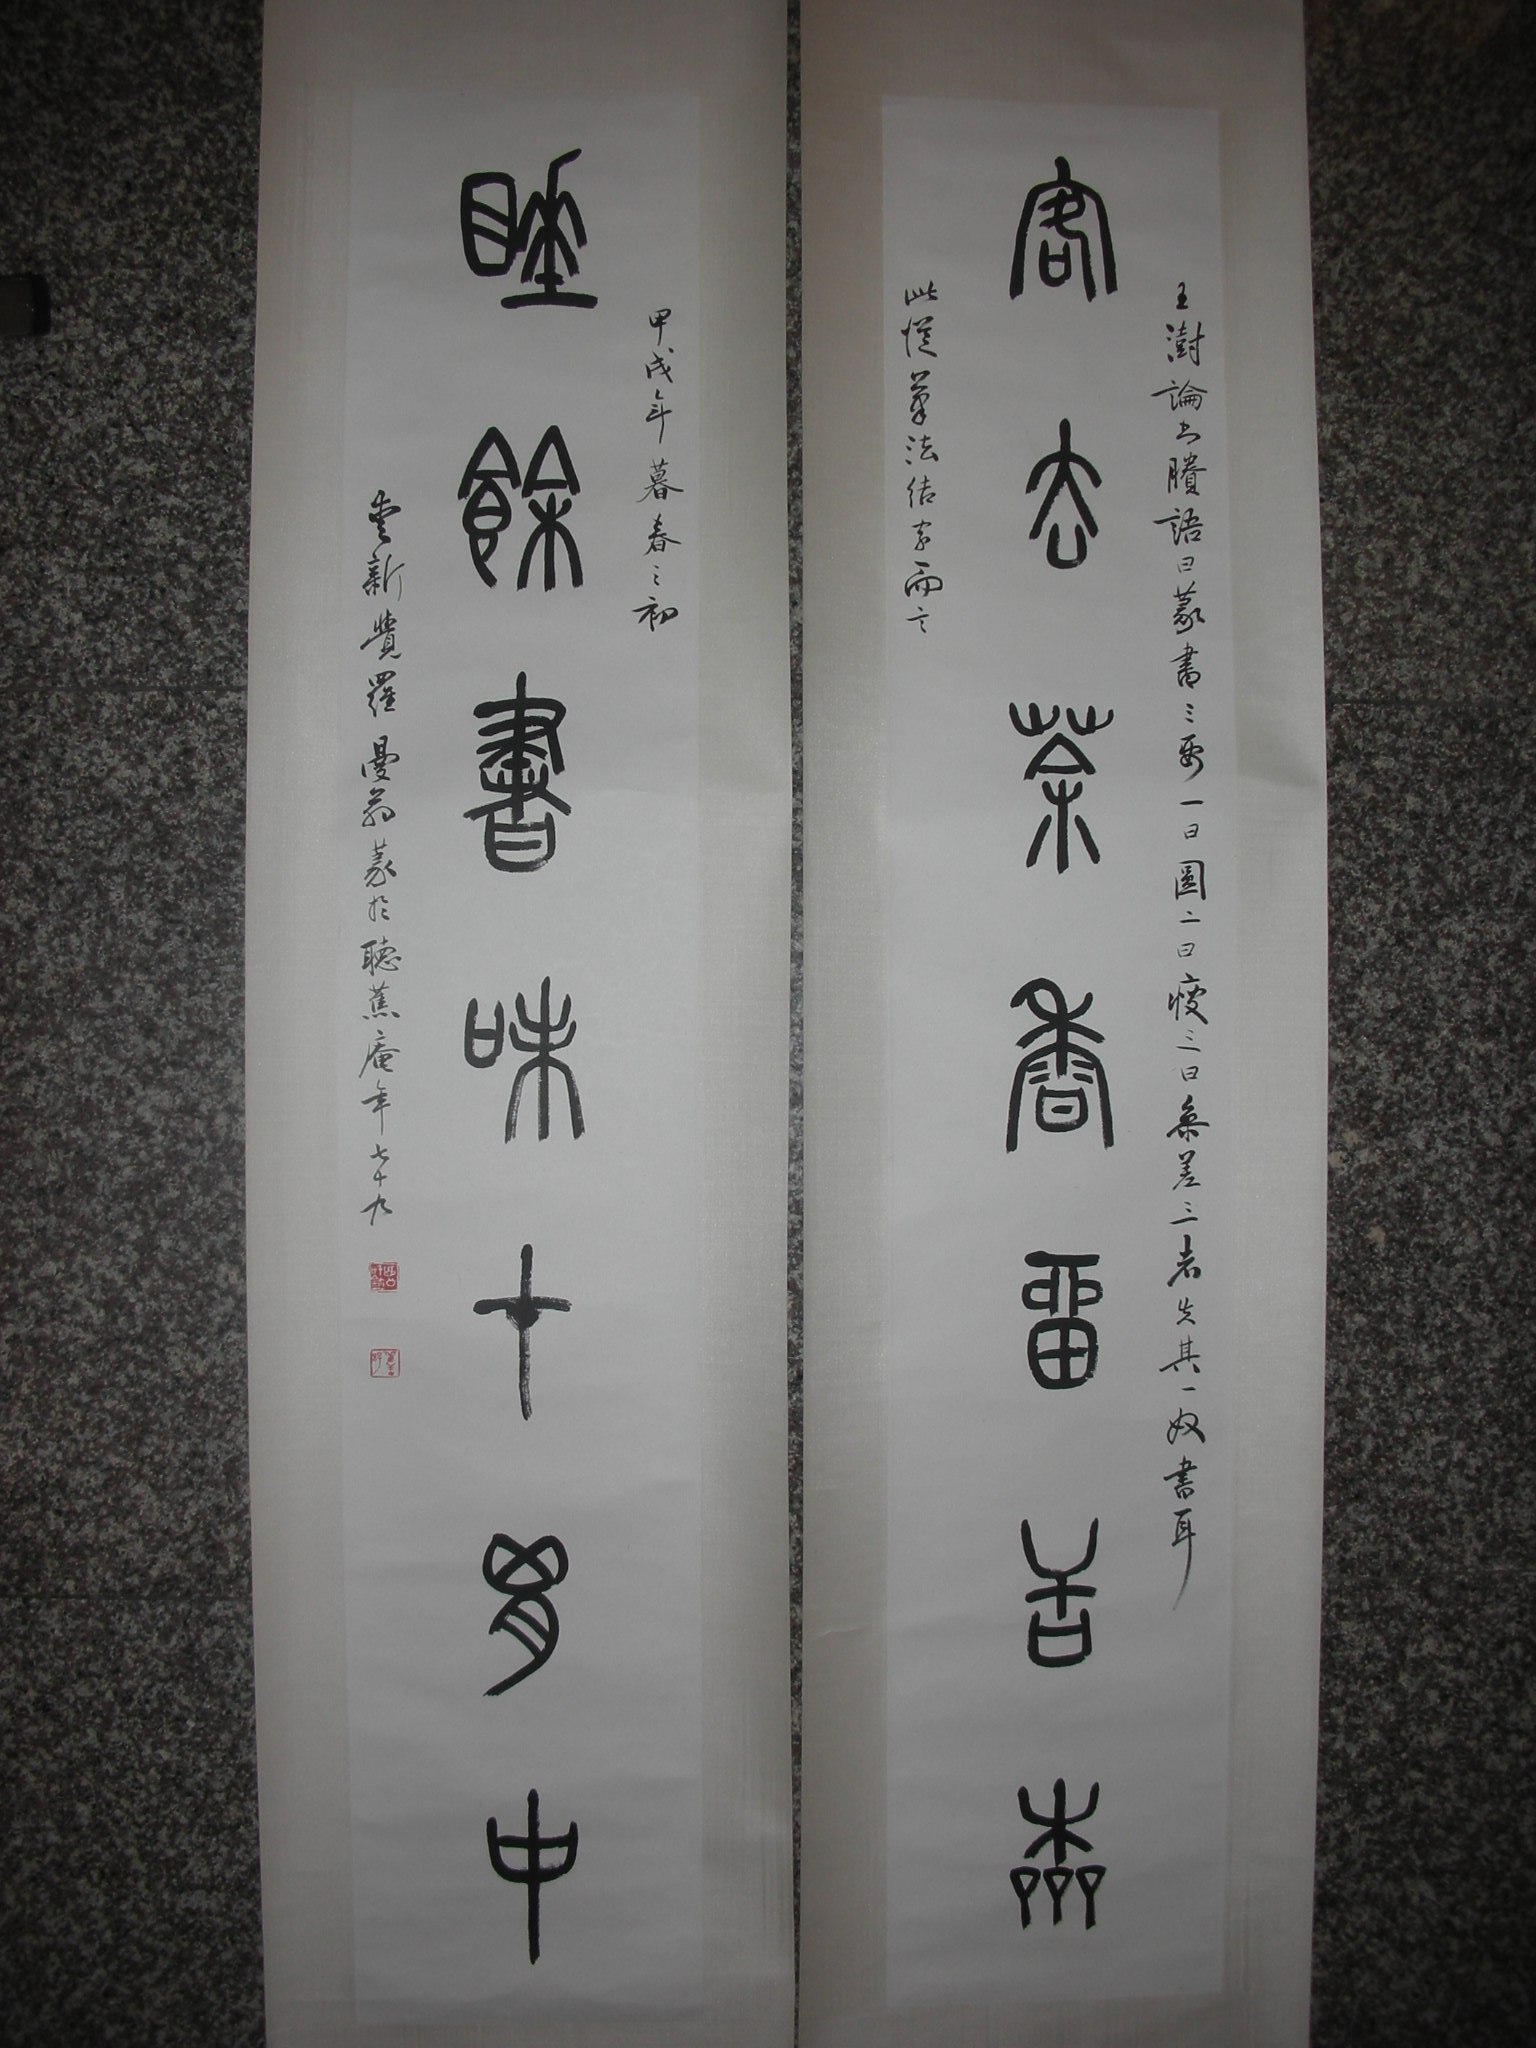 客去茶香留舌本
王澍論書賸語曰篆書三要一曰圓二曰瘦三曰參差三者失其一奴書耳
此從筆法結字而言
睡餘書味在胷中
甲戌年暮春之初
愛新覺羅曼翁篆於聽蕉庵年七十九